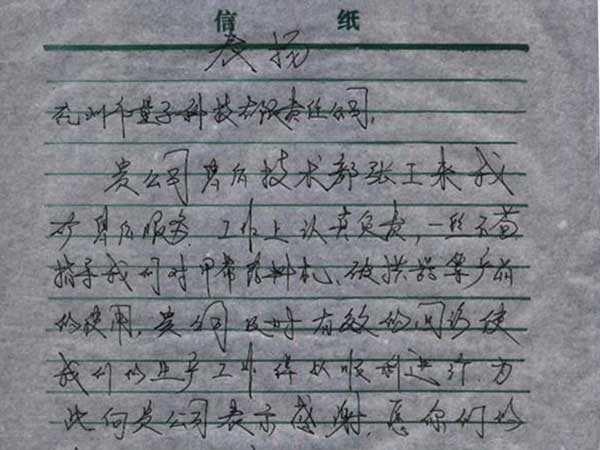 信 纸
表扬
兖州市量子科技有限责任公司:
贵公司售后技术部张工来我
矿售后服务, 工作上认真负责, 一丝不苟
指导我们对甲带给料机、破拱器等产品
的使用, 贵公司及时有效的回访使
我们的生产工作得以顺利进行, 为
此向贵公司表示感谢, 愿你们的